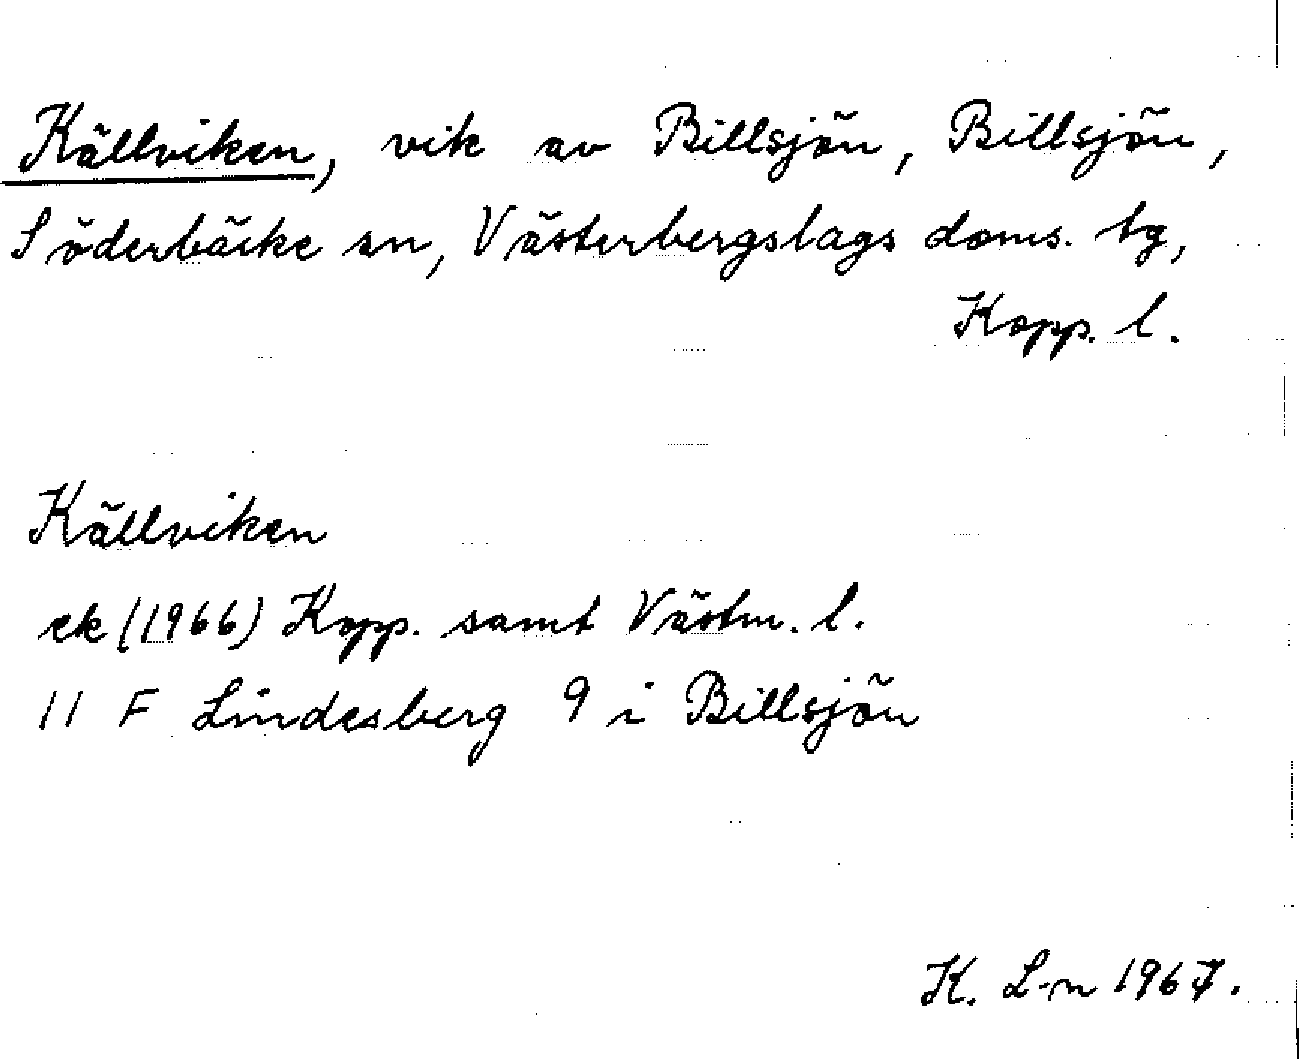 Källviken, vik av Billsjön, Billsjön,
Söderbäcke sn, Västerbergslags doms. tg,
Kopp. l.
Källviken
ek (1966) Kopp. samt Västm. l.
11 F Lindesberg 9 i Billsjön
K. L-n 1967.